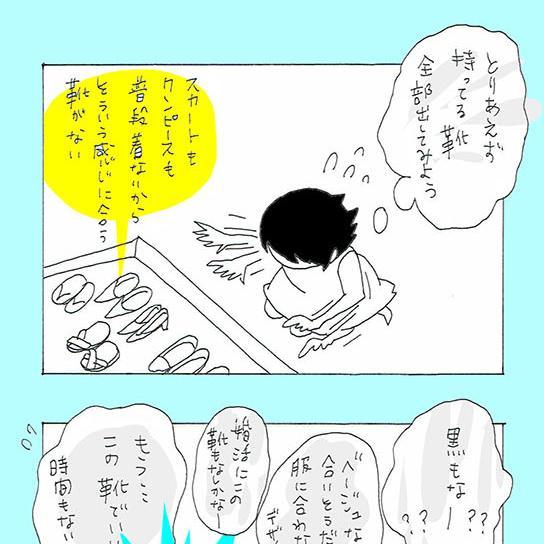 とりあえず
持ってる靴
全部出してみよう
スカートも
ワンピースも
普段着ないから
そういう感じに合う
靴がない
黒もなー
??
??
ベージュな
合いそうだ
服に合わな
デザ
婚活にこの
靴もなしかなー
もうここ
この靴でい
時間もない